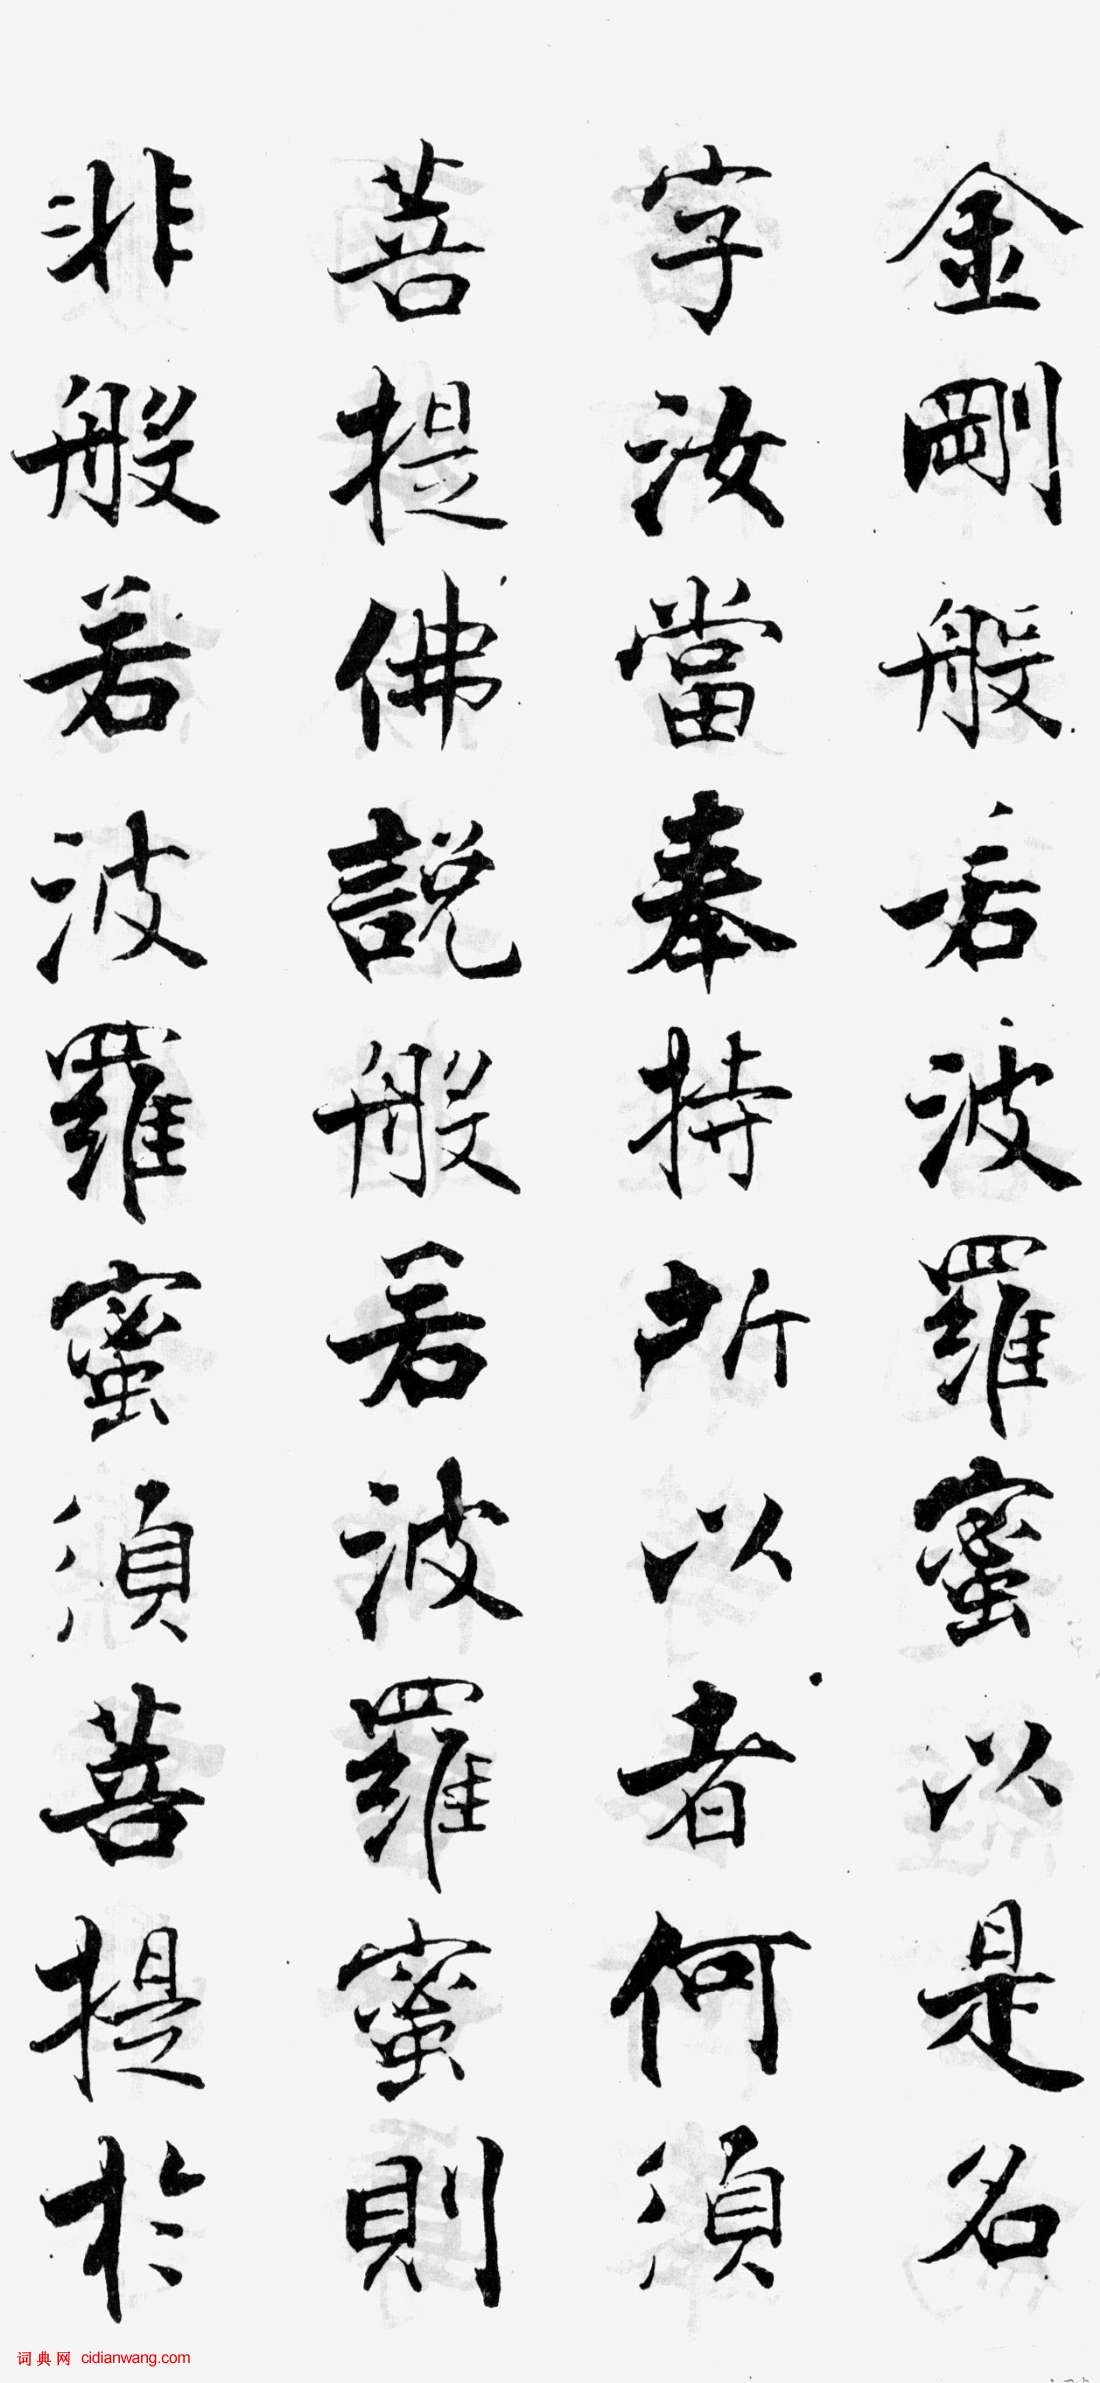 金剛般若波羅蜜以是名
字汝當奉持所以者何須
菩提佛說般若波羅蜜則
非般若波羅蜜須菩提於
词典网 cidianwang.com